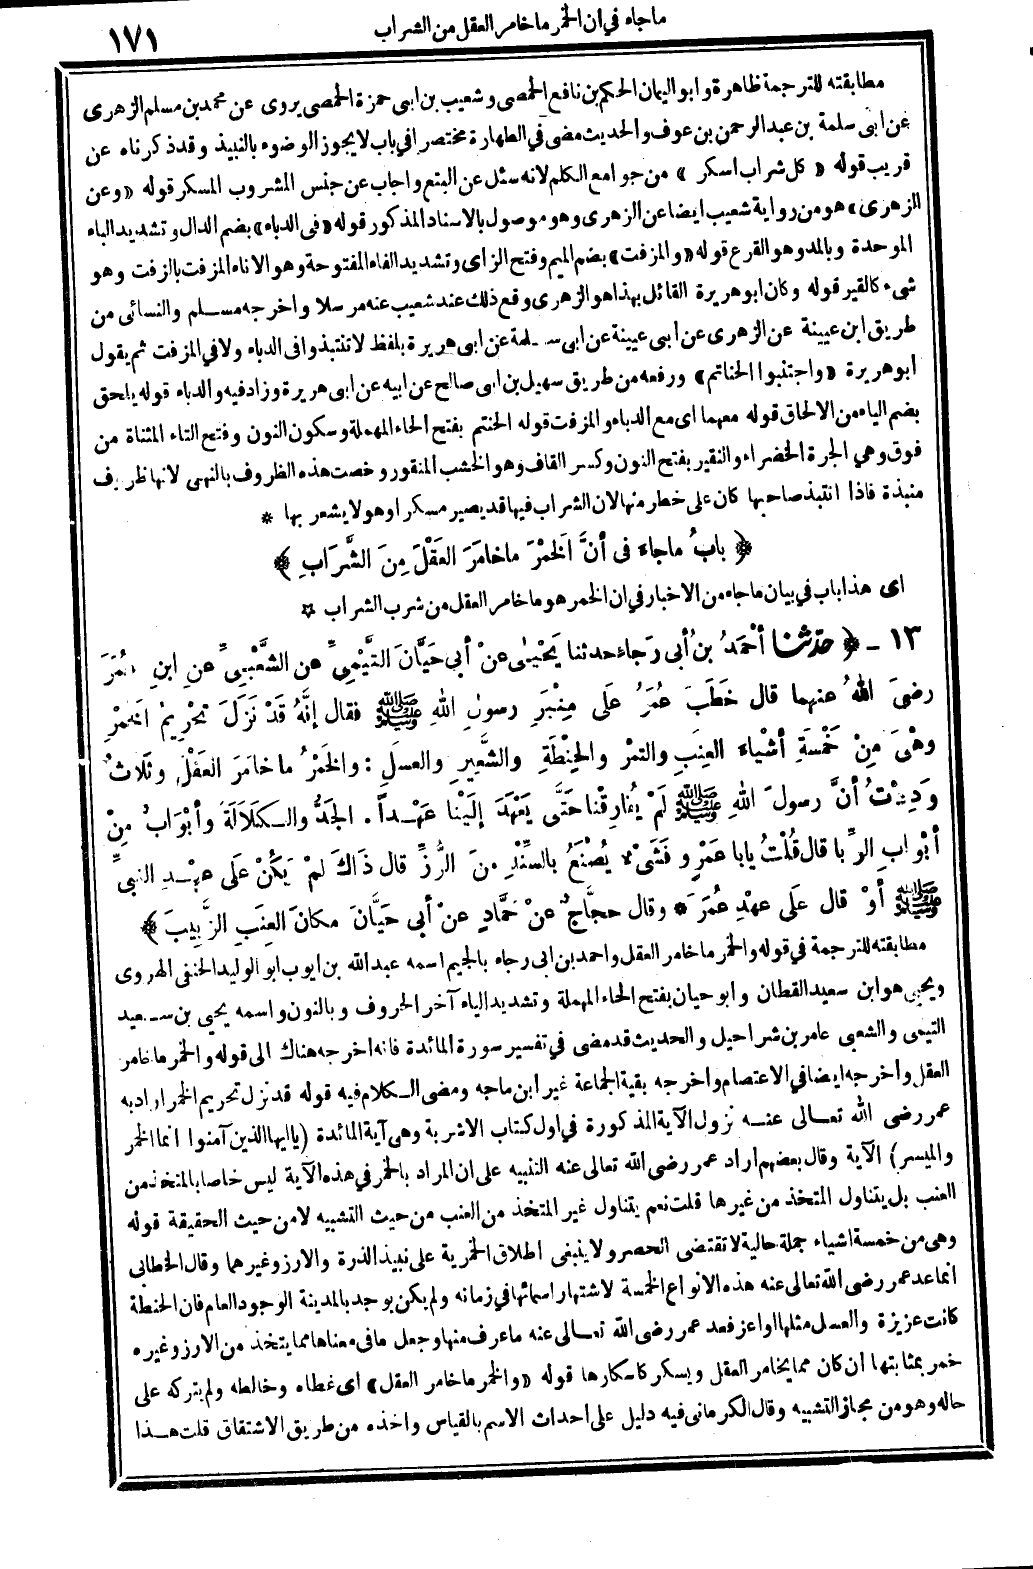 ما جاء في أن الخمر ما خامر العقل من الشراب
١٧١
مطابقته للترجمة ظاهرة وابو اليمان الحكم بن نافع الحمصى وشعيب بن ابى حمزة الحمصى يروى عن محمد بن مسلم الزهرى
عن ابى سلمة بن عبد الرحمن بن عوف والحديث مضى في الطهارة مختصرا في باب لا يجوز الوضوء بالنبيذ وقد ذكرناه عن
قريب قوله « كل شراب اسكر » من جوامع الكلم لانه سئل عن البتع واجاب عن جنس المشروب المسكر قوله « وعن
الزهرى » هو من رواية شعيب ايضا عن الزهرى وهو موصول بالاسناد المذكور قوله « فى الدباء » بضم الدال وتشديد الباء
الموحدة وبالمد وهو القرع قوله « والمزفت » بضم الميم وفتح الزاى وتشديد الفاء المفتوحة وهو الاناء المزفت بالزفت وهو
شىء كالقير قوله وكان ابو هريرة القائل بهذا هو الزهرى وقع ذلك عند شعيب عنه مرسلا واخرجه مسلم والنسائى من
طريق ابن عيينة عن الزهرى عن ابى عيينة عن ابى سلمة عن ابى هريرة بلفظ لا تنتبذوا فى الدباء ولا في المزفت ثم يقول
ابو هريرة « واجتنبوا الحناتم » ورفعه من طريق سهيل بن ابى صالح عن ابيه عن ابى هريرة وزاد فيه والدباء قوله يلحق
بضم الياء من الالحاق قوله معهما اى مع الدباء والمزفت قوله الحنتم بفتح الحاء المهملة وسكون النون وفتح التاء المثناة من
فوق وهي الجرة الخضراء والنقير بفتح النون وكسر القاف وهو الخشب المنقور وخصت هذه الظروف بالنهى لانها ظروف
منبذة فاذا انتبذ صاحبها كان على خطر منها لان الشراب فيها قد يصير مسكرا وهو لا يشعر بها *
﴿ بابُ ما جاءَ فى أنَّ الخَمْرَ ما خامَرَ العَقْلَ مِنَ الشَّرَابِ ﴾
اى هذا باب في بيان ما جاء من الاخبار في ان الخمر هو ما خامر العقل من شرب الشراب ☆
١٣ ـ ﴿ حدثنا أحْمَدُ بنُ أبى رَجاءٍ حدثنا يَحْيىٰ عنْ أبي حَيَّانَ التَّيْمِىِّ عن الشَّعْبِىِّ عنِ ابنِ عُمَرَ
رضىَ اللهُ عنهما قال خَطَبَ عُمَرُ عَلَى مِنْبَرِ رسولِ اللهِ ﷺ فقال إنَّهُ قَدْ نَزَلَ تَحْرِيمُ الخَمْرِ
وهْىَ مِنْ خَمْسَةِ أشْياءَ العِنَبِ والتمْرِ والحِنْطَةِ والشَّعِيرِ والعسلِ : والخَمْرُ ما خامَرَ العَقْلَ وثَلاثٌ
وَدِدْتُ أنَّ رسولَ اللهِ ﷺ لَمْ يُفارِقْنا حَتَّى يَعْهَدَ إلَيْنا عَهْداً . الجَدُّ والكَلَالَةُ وأبْوَابٌ مِنْ
أبْوابِ الرِّبا قال قُلْتُ يا با عَمْرٍو فَشَىْءٌ يُصْنَعُ بالسِّنْدِ منَ الرُّزِّ قال ذَاكَ لمْ يَكُنْ عَلَى عهدِ النبيِّ
ﷺ أوْ قال علَى عهْدِ عُمَرَ * وقال حجَّاجٌ عنْ حَمَّادٍ عنْ أبي حَيَّانَ مكانَ العِنَبِ الزَّبِيبَ ﴾
مطابقته للترجمة في قوله والخمر ما خامر العقل واحمد بن ابى رجاء بالجيم اسمه عبد الله بن ايوب ابو الوليد الحنفى الهروى
ويحيى هو ابن سعيد القطان وابو حيان بفتح الحاء المهملة وتشديد الياء آخر الحروف وبالنون واسمه يحيى بن سعيد
التيمى والشعبى عامر بن شراحيل والحديث قد مضى في تفسير سورة المائدة فانه اخرجه هناك الى قوله والخمر ما خامر
العقل واخرجه ايضا في الاعتصام واخرجه بقية الجماعة غير ابن ماجه ومضى الكلام فيه قوله قد نزل تحريم الخمر اراد به
عمر رضى الله تعالى عنه نزول الآية المذكورة في اول كتاب الاشربة وهى آية المائدة (يا ايها الذين آمنوا انما الخمر
والميسر) الآية وقال بعضهم اراد عمر رضى الله تعالى عنه التنبيه على ان المراد بالخمر في هذه الآية ليس خاصا بالمتخذ من
العنب بل يتناول المتخذ من غيرها قلت نعم يتناول غير المتخذ من العنب من حيث التشبيه لا من حيث الحقيقة قوله
وهى من خمسة اشياء جملة حالية لا تقتضى الحصر ولا ينبغى اطلاق الخمرية على نبيذ الذرة والارز وغيرهما وقال الخطابى
انما عد عمر رضى الله تعالى عنه هذه الانواع الخمسة لاشتهار اسمائها في زمانه ولم يكن يوجد بالمدينة الوجود العام فان الحنطة
كانت عزيزة والعسل مثلها او اعز فعد عمر رضى الله تعالى عنه ما عرف منها وجعل ما فى معناها مما يتخذ من الارز وغيره
خمر بمثابتها ان كان مما يخامر العقل ويسكر كاسكارها قوله « والخمر ما خامر العقل » اى غطاه وخالطه ولم يتركه على
حاله وهو من مجاز التشبيه وقال الكرمانى فيه دليل على احداث الاسم بالقياس واخذه من طريق الاشتقاق قلت هذا